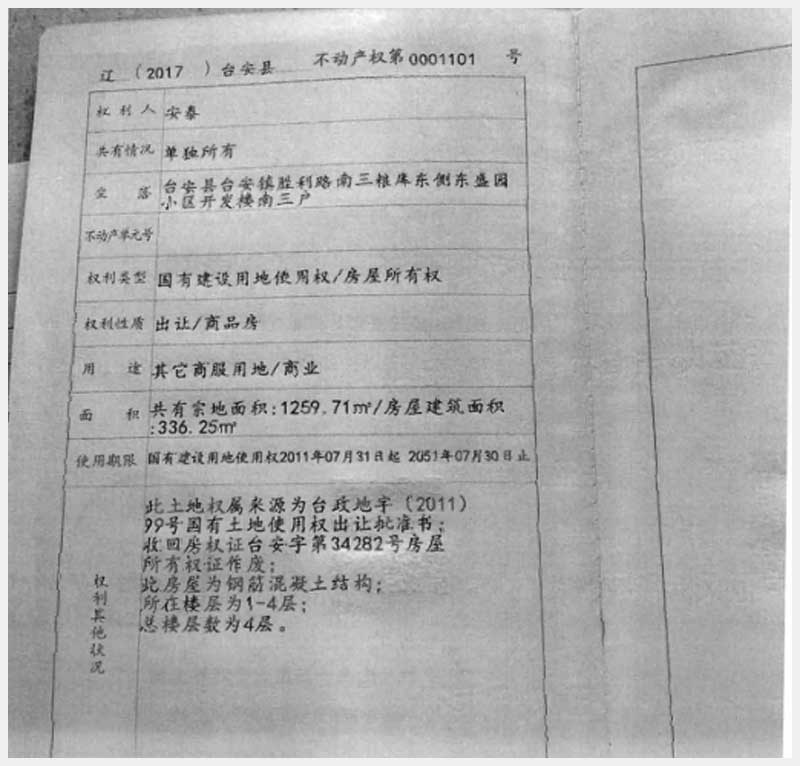 辽（2017 ）台安县 不动产权第0001101 号
权利人 安泰
共有情况 单独所有
坐落 台安县台安镇胜利路南三粮库东侧东盛园
小区开发楼南三户
不动产单元号
权利类型 国有建设用地使用权/房屋所有权
权利性质 出让/商品房
用途 其它商服用地/商业
面积 共有宗地面积:1259.71㎡/房屋建筑面积
:336.25㎡
使用期限 国有建设用地使用权2011年07月31日起 2051年07月30日止
权利其他状况
此土地权属来源为台政地字（2011）
99号国有土地使用权出让批准书;
收回房权证台安字第34282号房屋
所有权证作废;
此房屋为钢筋混凝土结构;
所在楼层为1-4层;
总楼层数为4层。